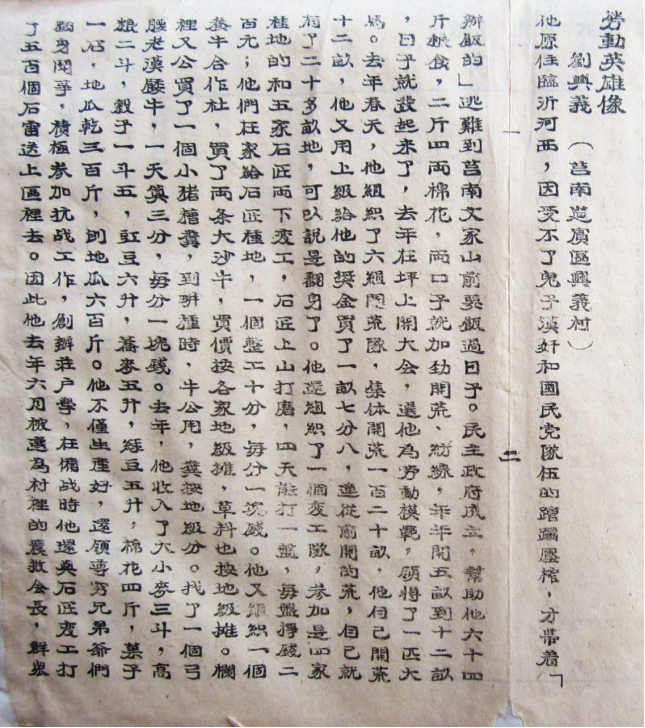 勞動英雄像
劉興義（莒南莚賓區興義村）
他原住臨沂河西，因受不了鬼子漢奸和國民党隊伍的蹧蹋壓榨，才帶着「
一
二
辦飯的」逃難到莒南文家山前要飯過日子。民主政府成立，幫助他六十四
斤粮食，二斤四両棉花，両口子就加劲開荒、紡線，年年開五畝到十二畝
，日子就發起來了，去年在坪上開大会，選他為勞動模範，領得了一匹大
馬。去年春天，他組織了六組開荒隊，集体開荒一百二十畝，他自己開荒
十二畝，他又用上級給他的奬金買了一畝七分八，連從前開的荒，自已就
有了二十多畝地，可以說是翻身了。他還組织了一個変工隊，参加是四家
種地的和五家石匠両下変工，石匠上山打磨，四天能打一盤，每盤掙錢二
百元；他們在家給石匠種地，一個整工十分，每分一塊錢。他又組織一個
養牛合作社，買了両条大沙牛，買價按各家地級摊，草料也按地級摊。欄
裡又公買了一個小猪糟糞，到耕種時，牛公用，糞按地級分。找了一個弓
腰老漢餧牛，一天算三分，每分一塊錢。去年，他收入了大小麥三斗，高
粮二斗，穀子一斗五，豇豆六升，蕎麥五升，綠豆五升，棉花四斤，菓子
一石，地瓜乾三百斤，刨地瓜六百斤。他不僅生產好，還領導窮兄弟爺們
翻身鬥爭，積極参加抗战工作，創辦莊户學，在備战時他還與石匠変工打
了五百個石雷送上區裡去。因此他去年六月被選為村裡的農救会長，鮮農